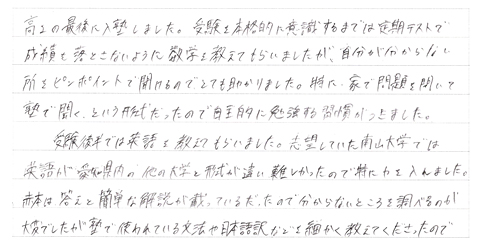 高2の最後に入塾しました。受験を本格的に意識するまでは定期テストで
成績を落とさないように数学を教えてもらいましたが、自分が分からない
所をピンポイントで聞けるのでとても助かりました。特に、家で問題を開いて
塾で聞く、という形式だったので自主的に勉強する習慣がつきました。
受験後半では英語を教えてもらいました。志望していた南山大学では
英語が愛知県内の他の大学と形式が違い難しかったので特に力を入れました。
赤本は答えと簡単な解説が載っているだったので分からないところを調べるのが
大変でしたが塾で使われている文法や日本語訳などを細かく教えてくださったので